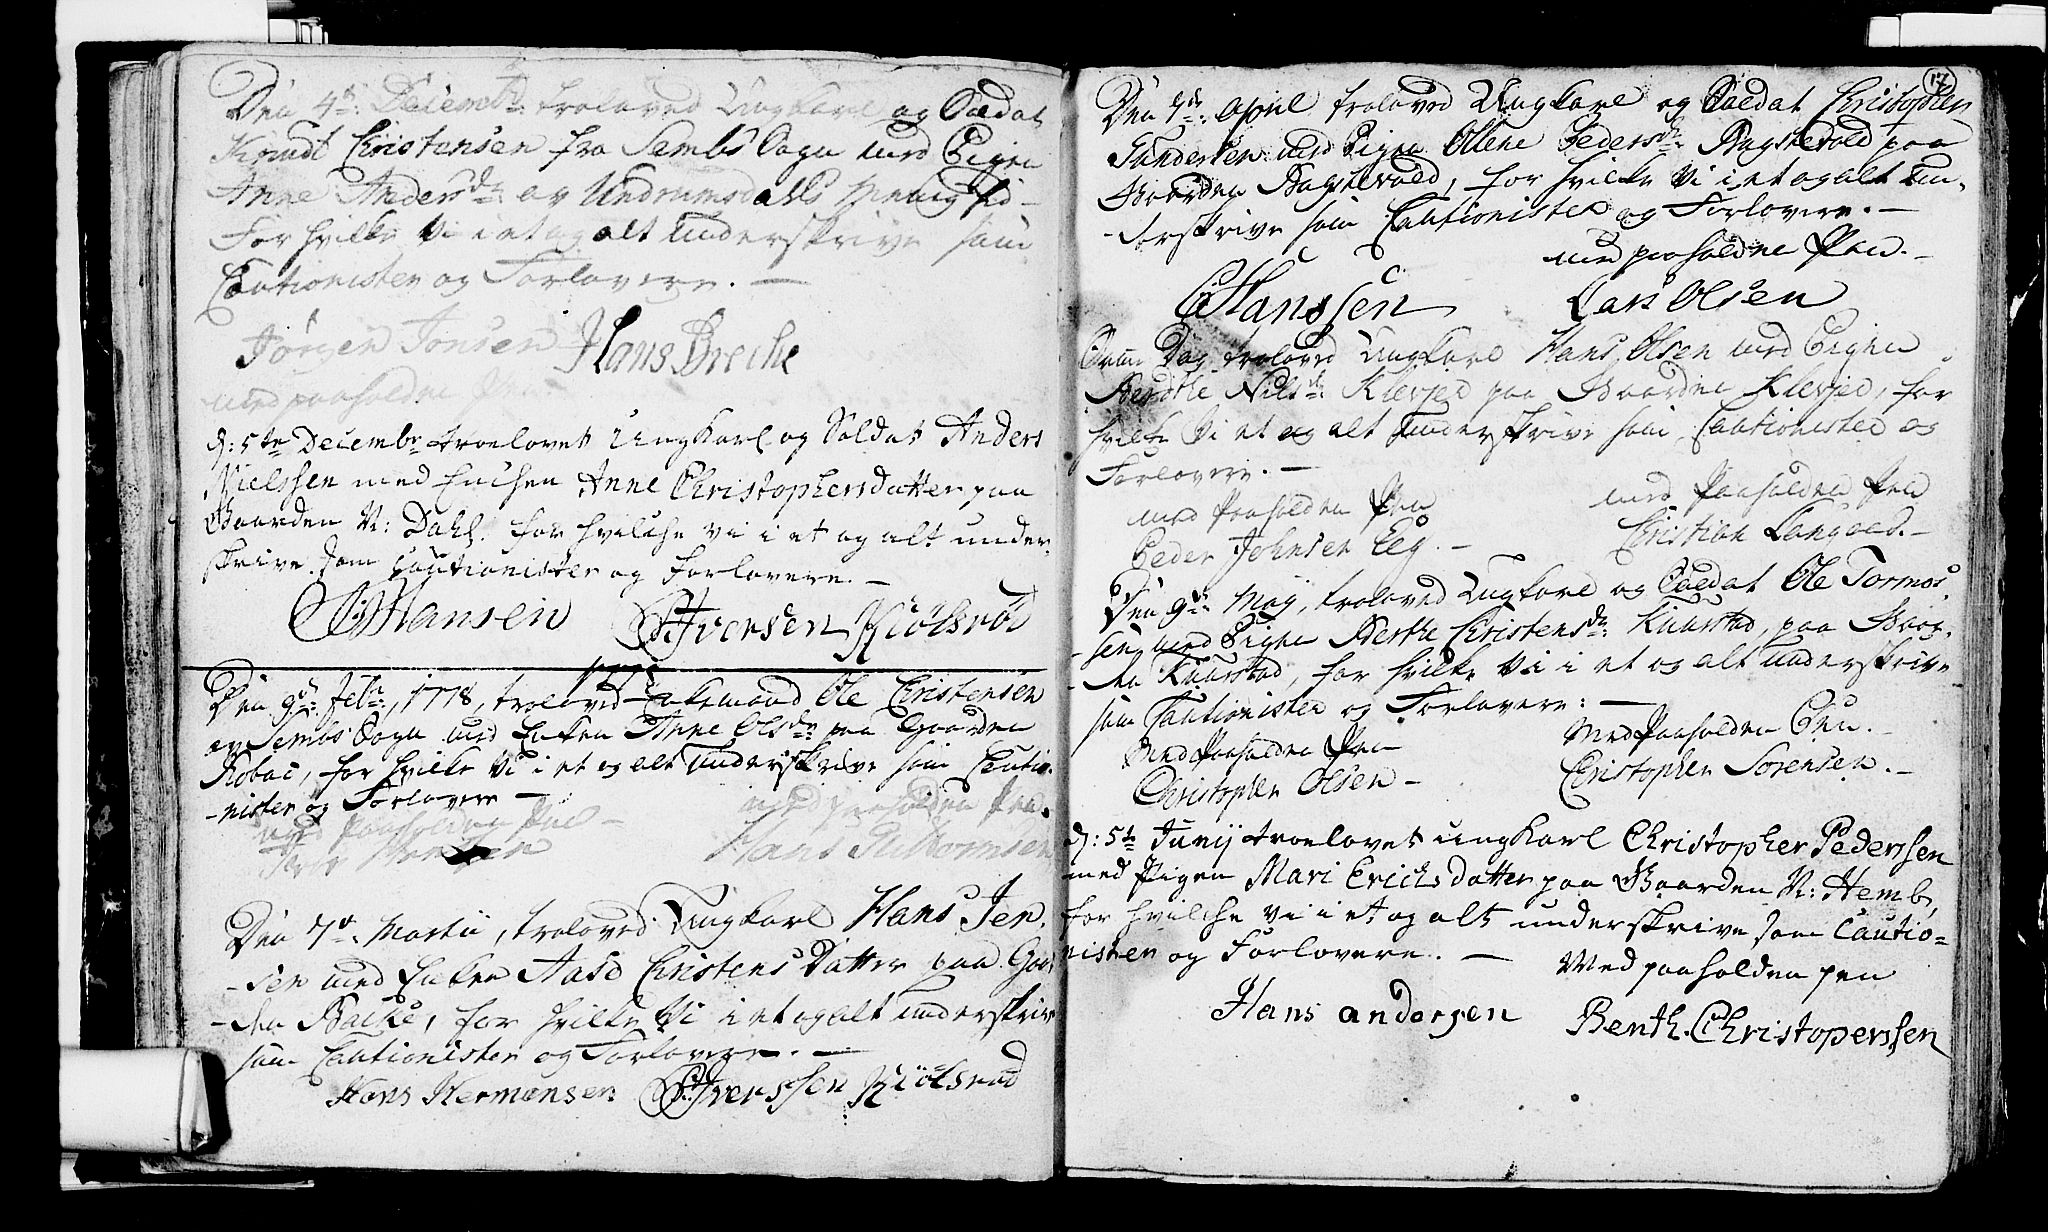 Den 4de: Decembr: troloved Ungkarl og Soldat
Knudt Christensen fra Sembs Sogn med Pigen
Anne Andersdr: av Undrumsdalls Menighed –
For hvilke Vi i et og alt underskrive som
Cautionister og Forlovere. —
Jörgen Jonsen Hans Breche
med paaholden Pen
d: 5te Decembr troelovet ungKarl og Soldat Anders
Nielssen med Enchen Anne Christophersdatter paa
Gaarden N: Dahl. for hvilche vi i et og alt under-
skrive som Cautionister og Forlovere. —
Hansen Iversen Kiölsröd
1778
Den 9de: Febr:, 1778, troloved Enkemand Ole Christensen
av Sembs Sogn med Enken Anne Olsdr paa Gaarden
Robac, for hvilke Vi i et og alt underskrive som Cautio-
-nister og Forlovere —
med Paaholden Pen – med paaholden Pen.
Hans
Den 7de: Martii, troloved Ungkarl Hans Jen-
-sen med Enken Aase Christens Datter paa Gaar-
-den Backe, for hvilke Vi i et og alt underskrive
som Cautionister og Forlovere. —
Hans Hermansen Iverssen Kiölsröd
17
Den 7de: April troloved Ungkarl og Soldat Christopher
Gundersen med Pigen Ollene Pedersdr: Bagstevold paa
Gaarden Bagstevold, for hvilke Vi i et og alt un-
-derskrive som Cautionister og Forlovere. —
med paaholden Pen. –
Hanssen Lars Olsen
Samme Dag troloved Ungkarl Hans Olsen med Pigen
Berthe Nilsdr: Klevjer paa Gaarden Klevjer, for
hvilke Vi i et og alt underskrive som Cautionister og
Forlovere. —
med Paaholden Pen med Paaholden Pen
Peder Johnsen Eeg. – Christian Langved. –
Den 9de: Maij, troloved Ungkarl og Soldat Ole Tormos-
-sen med Pigen Berthe Christensdr: Knarstad, paa Gaar-
-den Knarstad, for hvilke Vi i et og alt underskrive
som Cautionister og Forlovere: —
Med Paaholden Pen Med Paaholden Pen. –
Christopher Olsen – Christopher Sörensen. –
d: 5te Junij troelovet ungKarl Christopher Pederssen
med Pigen Mari Erichsdatter paa Gaarden N: Hemb,
for hvilche vi i et og alt underskrive som Cautio=
nister og Forlovere. —
Med paaholden pen
Hans andersen Benth. Christoperssen